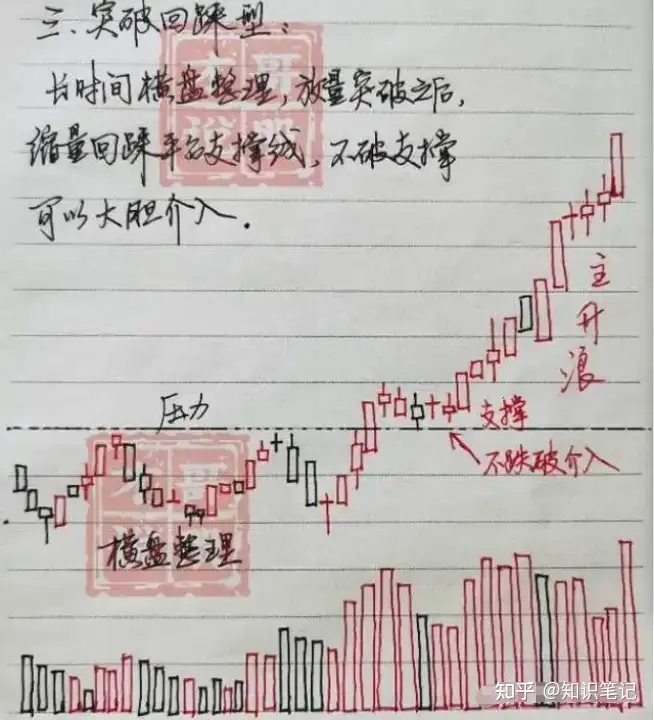 三、突破回踩型：
长时间横盘整理，放量突破之后，
缩量回踩平台支撑线，不破支撑
可以大胆介入．
主升浪
压力
支撑
不跌破介入
横盘整理
知乎 @知识笔记